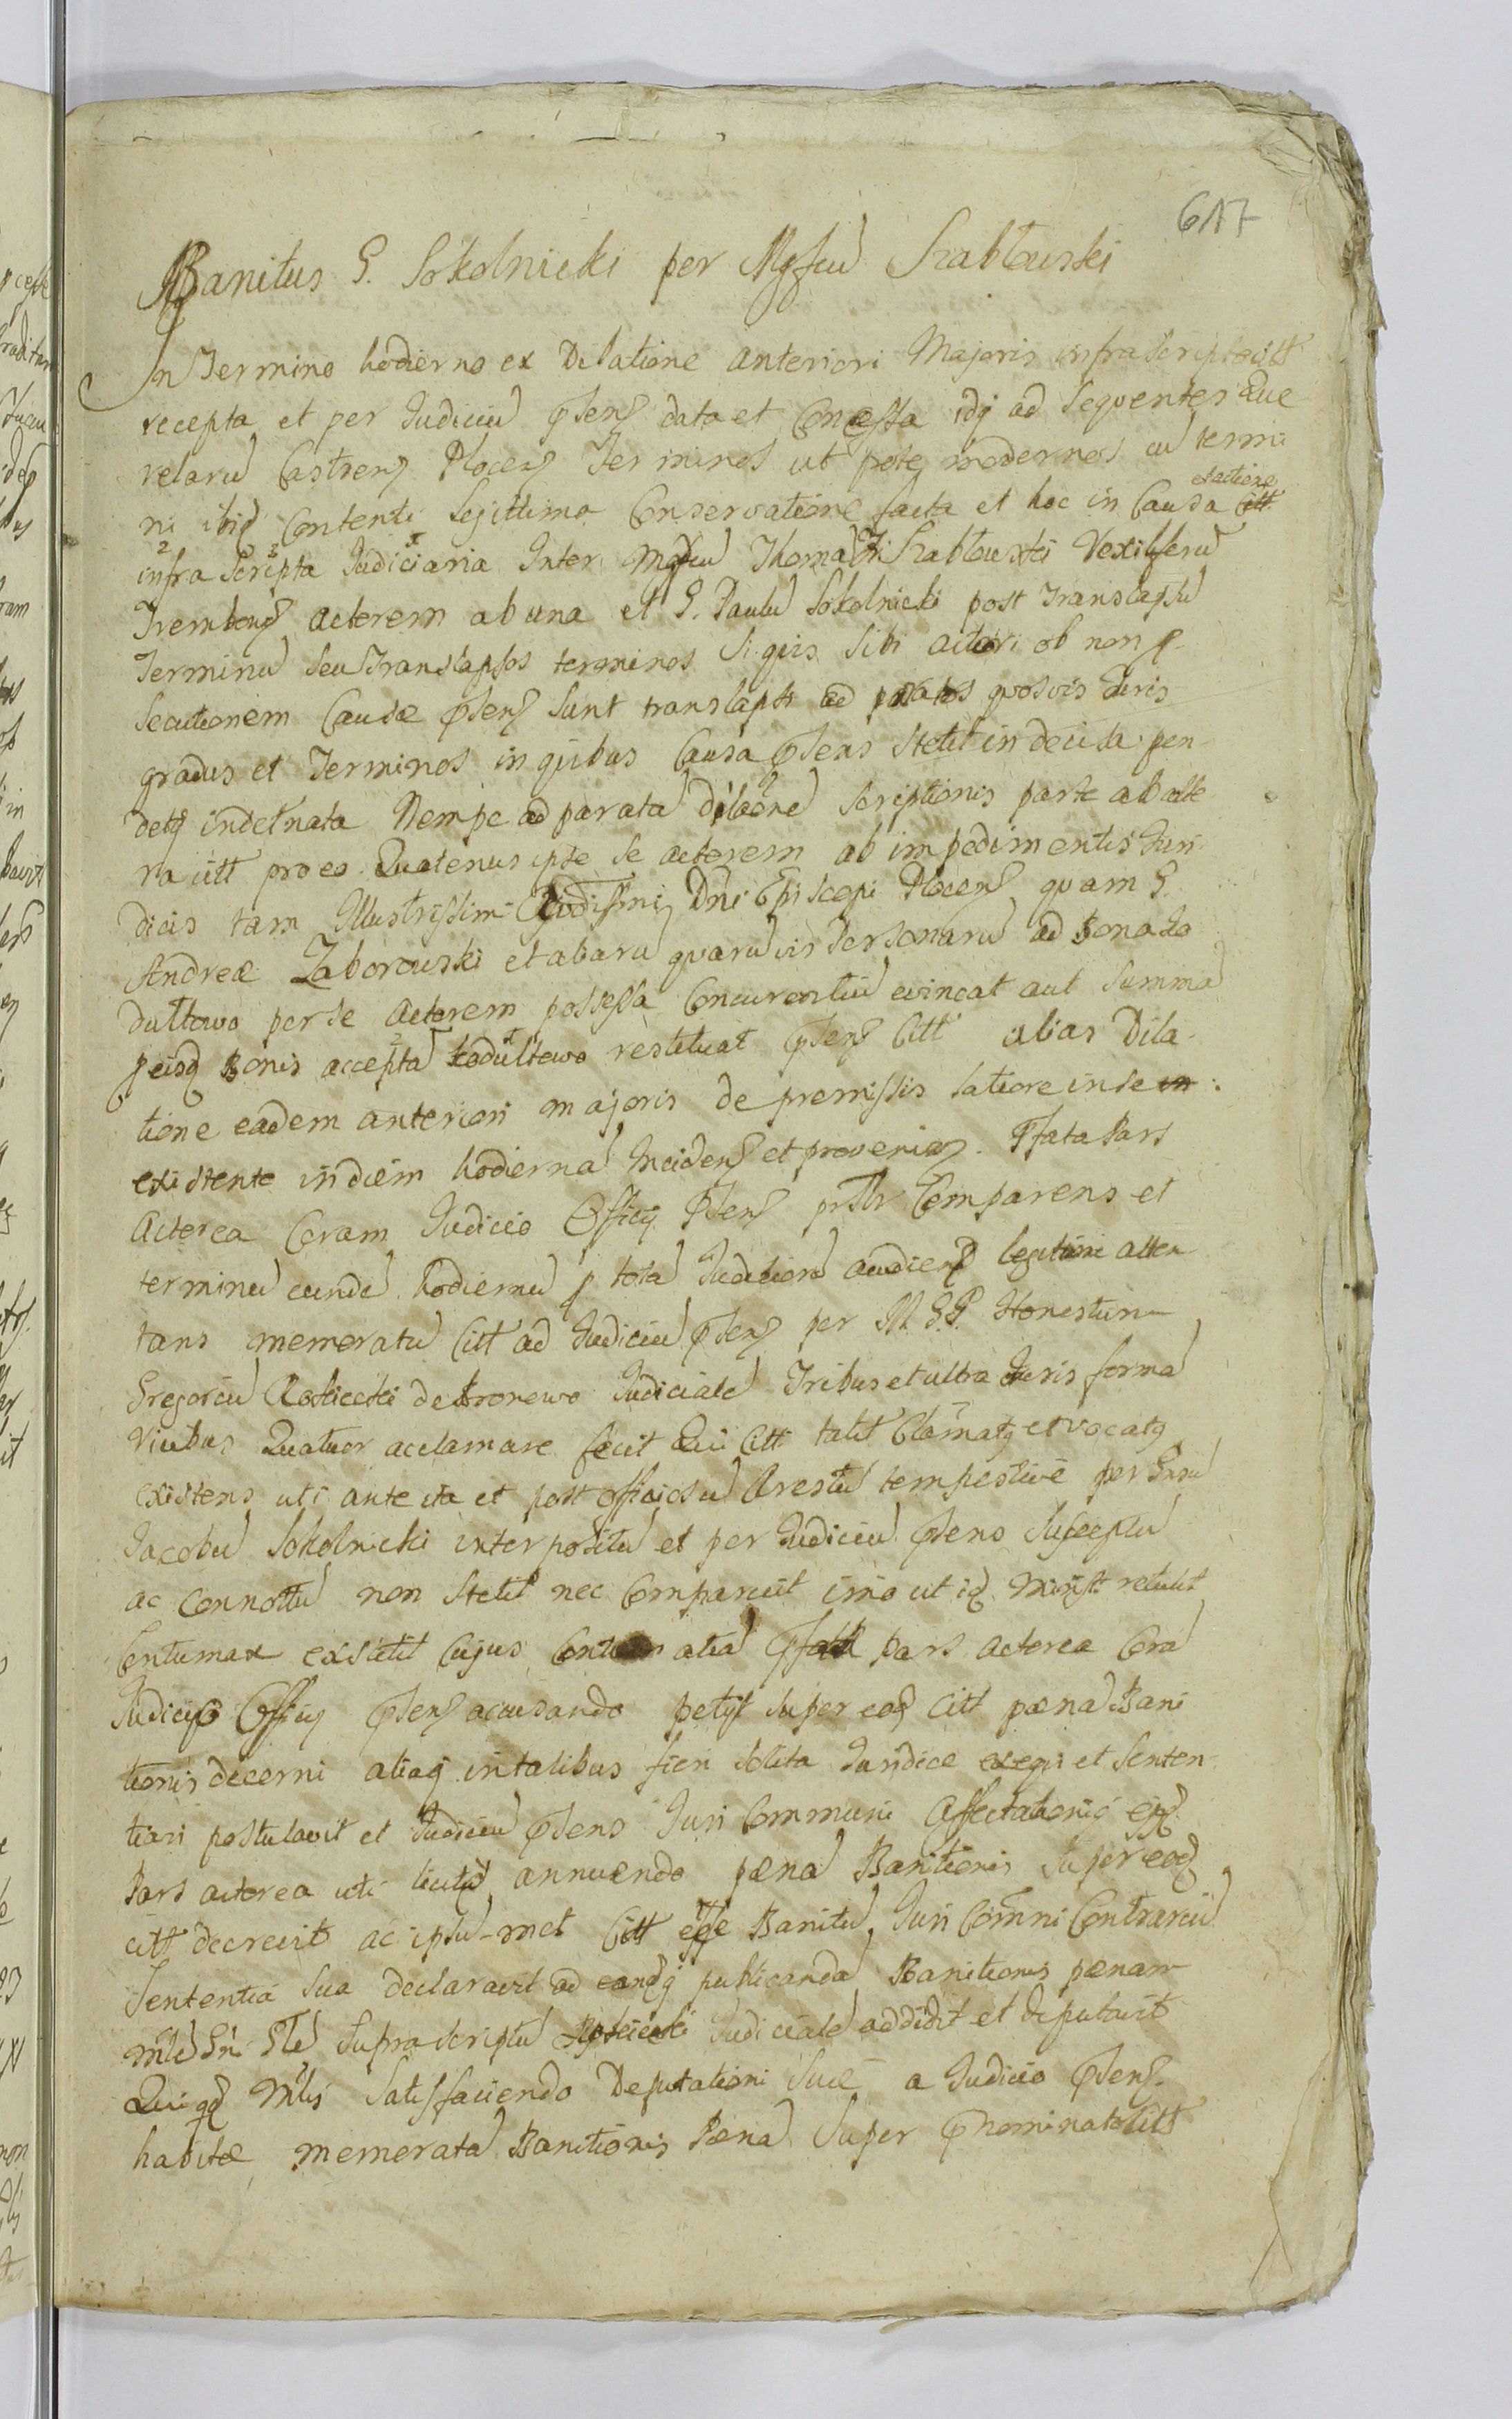 617
Banitus G. Sokolnicki per Mgfcu Szabłowski
In Termino hodierno ex Dilatione anteriori Majoris infrascripto citt
recepta et per Judiciu Psens data et Concessa idq ad Sequentes Que
relaru Castrens Plocens Terminos ut pote modernos cu termi
ni ibid Contenti Legittima Conservatione facta et hoc in Causa citt
et actione
2 3 1
infra Scripta Judiciaria Inter Mgfcu Thoma Szabłowski Vexilliferu
Trembows actorem ab una et G. Paulu Sokolnicki post Translapsu
Terminu seu Translapsos terminos Si quis Sibi actori ob non p
secutionem Causæ Psens sunt translapsi ad paratos quosvis Juris
gradus et Terminos in quibus Causa Psens Stetit indecisa pen
detq indetnata Nempe ad parata dilaone Scriptionis parte ab alte
ra citt pro eo Quatenus ipse se actorem ab impedimentis Juri
dicis tam Illustrissimi Dni Episcopi Plocens quam G.
Andreæ Zaborowski et aliaru quaruvis Personaru ad bona Ko
dułtowo per se Actorem possessa Concurentiu evincat aut Summa
p eisd Bonis accepta Kodułtowo restituat Psens Citt alias Dila
tione eadem anteriori majoris de premissis latiore in se
existente in diem hodierna Incidens et proveniens. Pfata Pars
Actorea Coram Judicio Officij Psens prsltr Comparens et
terminu eunde hodiernu p tota Judicior audiend legitime atten
tans memoratu Citt ad Judiciu Psens per M. G. P. Honestum
Gregoriu Rościcki de Bronewo Judiciale Tribus et ultra Juris forma
Vicibus Quatuor acclamare fecit Qui Citt talit Clamatq et vocatq
existens uti ante ita et post officiosu Arestu tempestive per Grsu
Jacobu Sokolnicki interpositu et per Judiciu Psens Susceptu
ac Connottu non Stetit nec Comparuit imo ut id Minist retulit
Contumax extitit Cujus Contumatia Pfata pars actorea Cora
Judicio Officij Psens accusando petijt Super eod Citt pæna Bani
tionis decerni aliaq in talibus fieri Solita Juridice exequi et Senten
tiari postulavit et Judiciu Psens Juri Communi Affectationiq ejd
Pars actorea uti licita annuendo pæna Banitionis Super eod
citt decrevit ac ipsu-met Citt esse Banitu Juri Comni Contrariu
Sententia Sua declaravit ad eandq publicanda Banitionis pænam
mle Gri Gle Supra scriptu Rościcki Judiciale addidit et deputavit
Qui qd Mlis Satisfaciendo Deputationi Suæ a Judicio Psens
habitæ memorata Banitionis Pæna Super Pnominato Citt